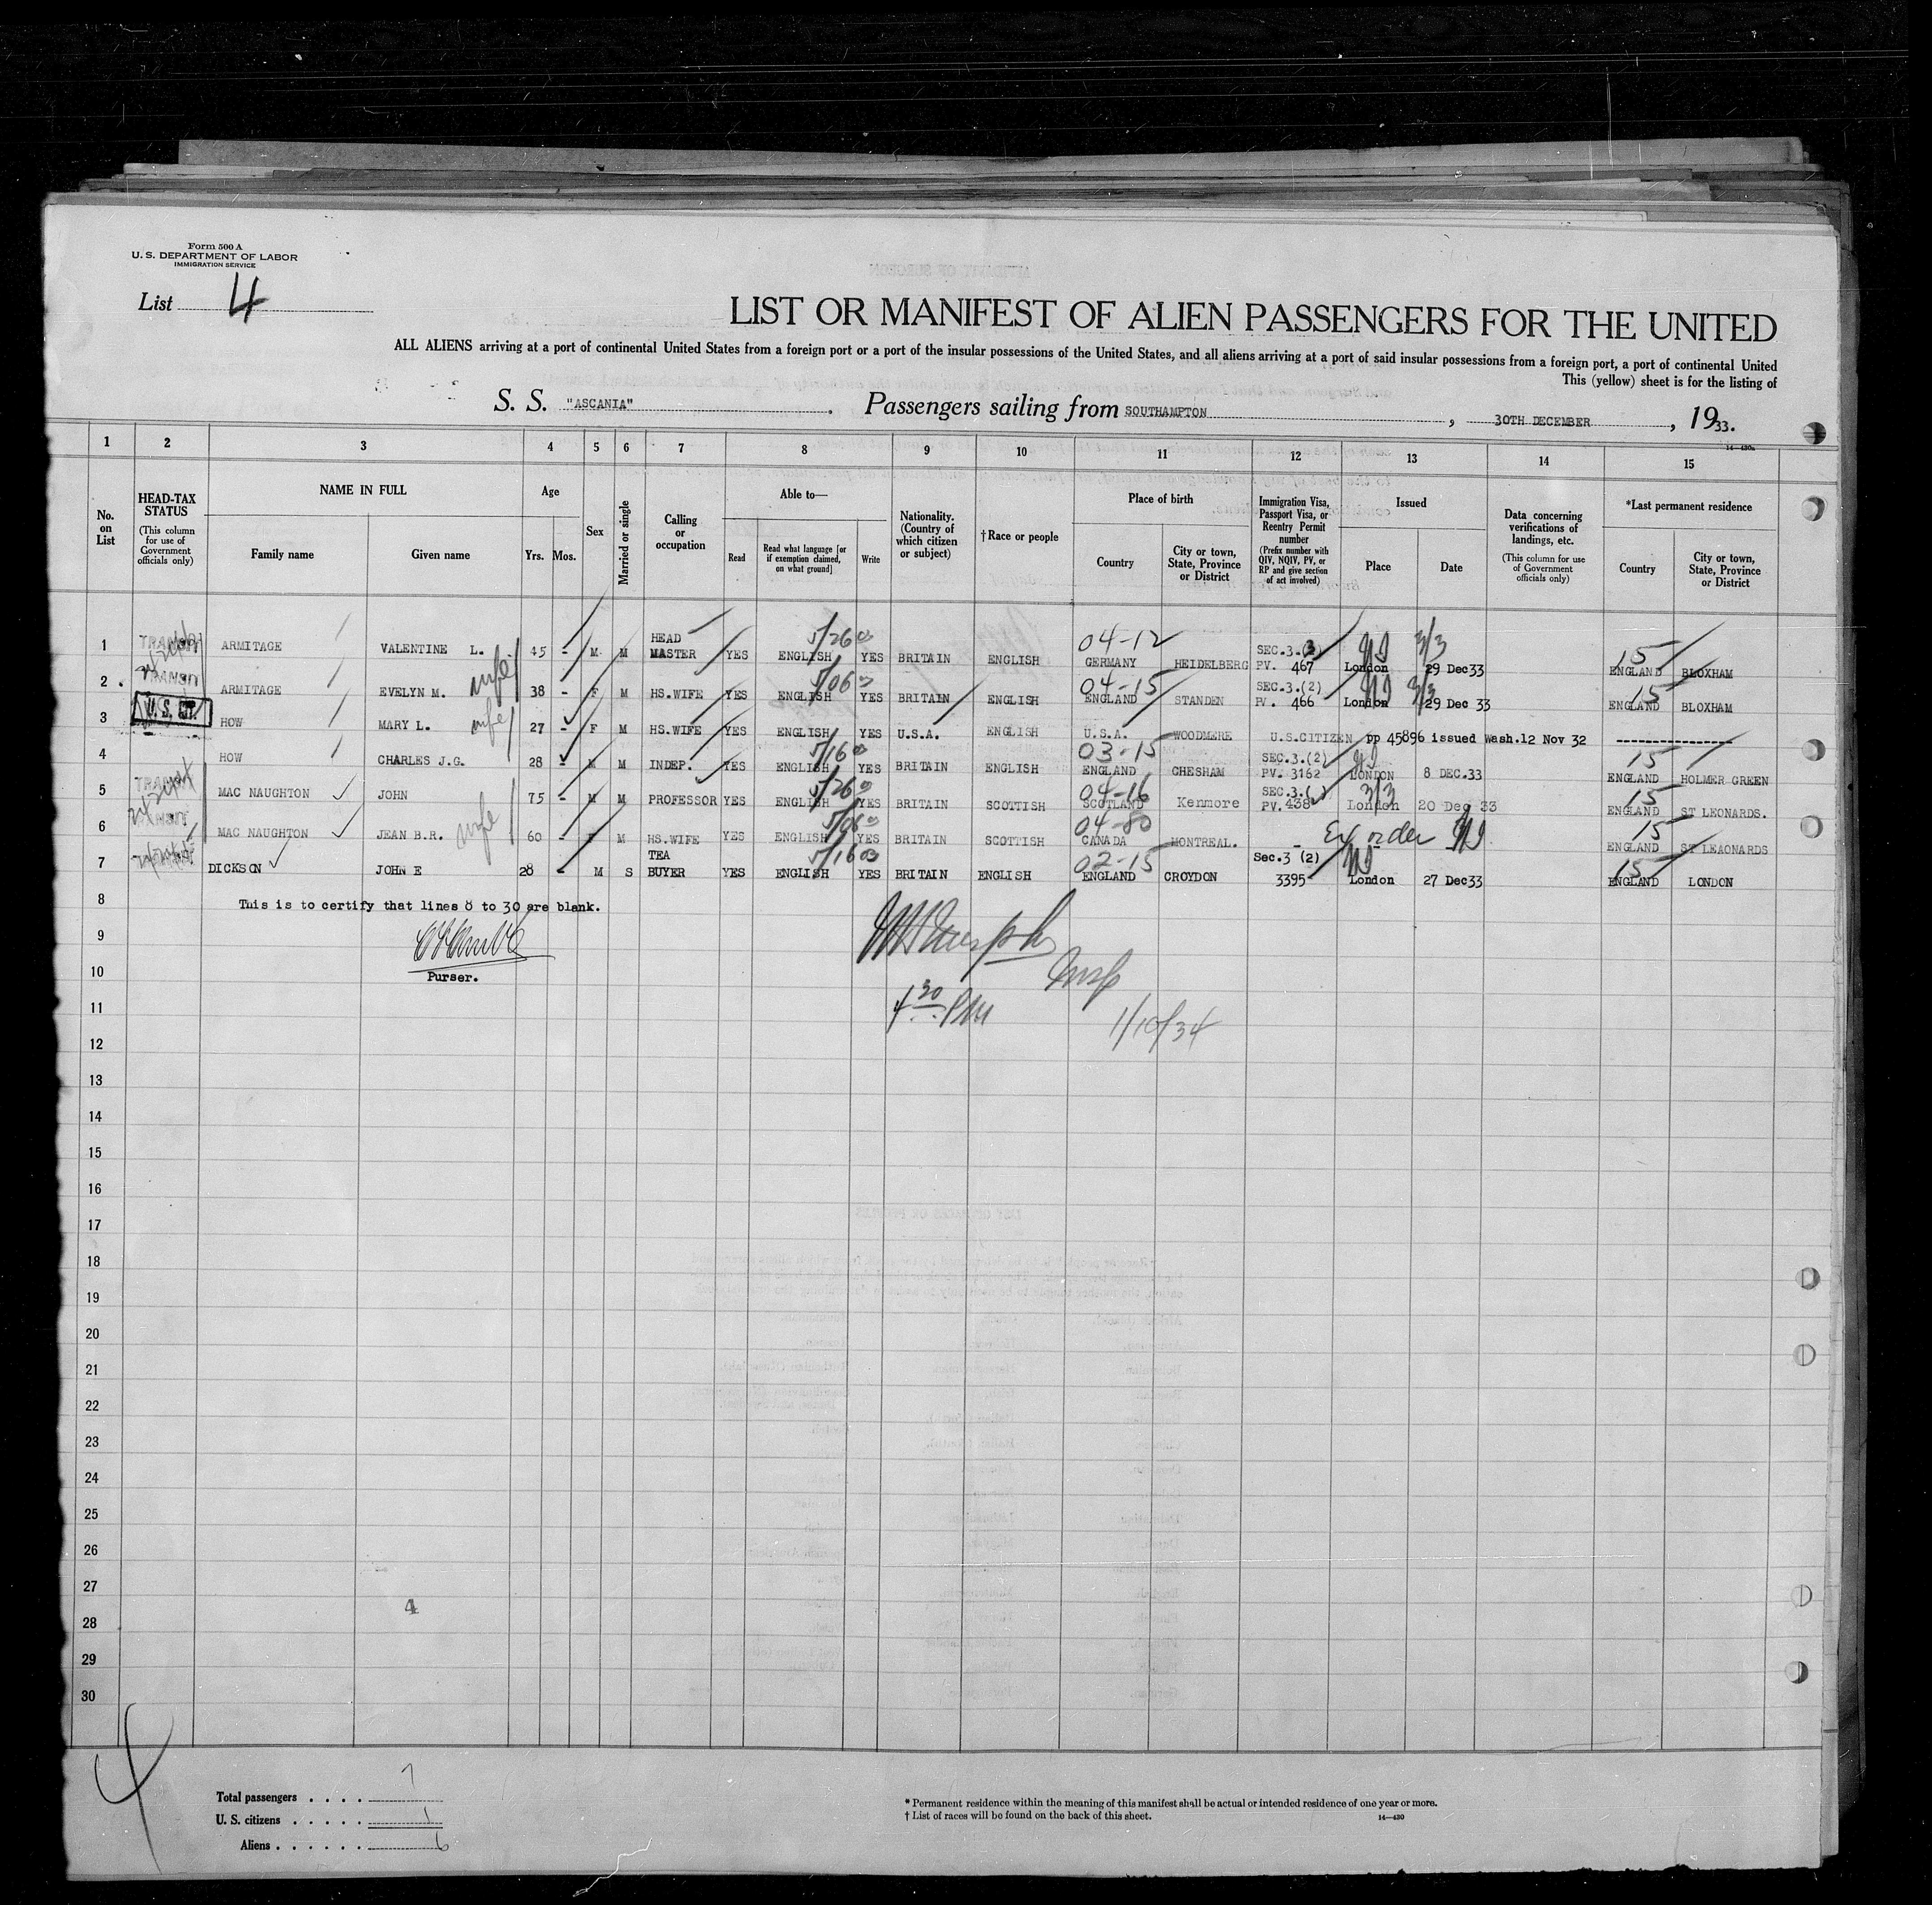 Form 500 A
U. S. DEPARTMENT OF LABOR
IMMIGRATION SERVICE
List 4
LIST OR MANIFEST OF ALIEN PASSENGERS FOR THE UNITED
ALL ALIENS arriving at a port of continental United States from a foreign port or a port of the insular possessions of the United States, and all aliens arriving at a port of said insular possessions from a foreign port, a port of continental United
This (yellow) sheet is for the listing of
S. S. "ASCANIA" Passengers sailing from SOUTHAMPTON, 30TH DECEMBER, 1933.
1 2 3 4 5 6 7 8 9 10 11 12 13 14 15
No. on List
HEAD-TAX STATUS (This column for use of Government officials only)
NAME IN FULL
Family name
Given name
Age
Yrs. Mos.
Sex
Married or single
Calling or occupation
Able to—
Read
Read what language [or if exemption claimed, on what ground]
Write
Nationality. (Country of which citizen or subject)
†Race or people
Place of birth
Country
City or town, State, Province or District
Immigration Visa, Passport Visa, or Reentry Permit number (Prefix number with QIV, NQIV, PV, or RP and give section of act involved)
Issued
Place
Date
Data concerning verifications of landings, etc. (This column for use of Government officials only)
*Last permanent residence
Country
City or town, State, Province or District
14—430a
1 TRANSIT ARMITAGE VALENTINE L. 45 - M M HEAD MASTER YES ENGLISH YES BRITAIN ENGLISH 04-12 GERMANY HEIDELBERG SEC.3.(3) PV. 467 London 3/3 29 Dec33 15 ENGLAND BLOXHAM
2 TRANSIT ARMITAGE EVELYN M. wife 38 - F M HS.WIFE YES ENGLISH YES BRITAIN ENGLISH 04-15 ENGLAND STANDEN SEC.3.(2) PV. 466 London 3/3 29 Dec 33 15 ENGLAND BLOXHAM
3 HOW MARY L. wife 27 - F M HS.WIFE YES ENGLISH YES U.S.A. ENGLISH U.S.A. WOODMERE U.S.CITIZEN pp 45896 issued Wash.12 Nov 32
4 HOW CHARLES J.G. 28 - M M INDEP. YES ENGLISH YES BRITAIN ENGLISH 03-15 ENGLAND CHESHAM SEC.3.(2) PV. 3162 LONDON 8 DEC.33 15 ENGLAND HOLMER GREEN
5 TRANSIT MAC NAUGHTON JOHN 75 - M M PROFESSOR YES ENGLISH YES BRITAIN SCOTTISH 04-16 SCOTLAND Kenmore SEC.3.( ) PV. 438 London 3/3 20 Dec 33 15 ENGLAND ST LEONARDS.
6 TRANSIT MAC NAUGHTON JEAN B.R. wife 60 - F M HS.WIFE YES ENGLISH YES BRITAIN SCOTTISH 04-80 CANADA MONTREAL. Ex order 15 ENGLAND ST LEAONARDS
7 DICKSON JOHN E 28 - M S TEA BUYER YES ENGLISH YES BRITAIN ENGLISH 02-15 ENGLAND CROYDON Sec.3 (2) 3395 London 27 Dec33 15 ENGLAND LONDON
8 This is to certify that lines 8 to 30 are blank.
9
10 Purser.
Insp
11 4 30 PM
1/10/34
12
13
14
15
16
17
18
19
20
21
22
23
24
25
26
27
4
28
29
30
4
Total passengers . . . . 7
U. S. citizens . . . . . 1
Aliens . . . . . . 6
* Permanent residence within the meaning of this manifest shall be actual or intended residence of one year or more.
† List of races will be found on the back of this sheet.
14—430